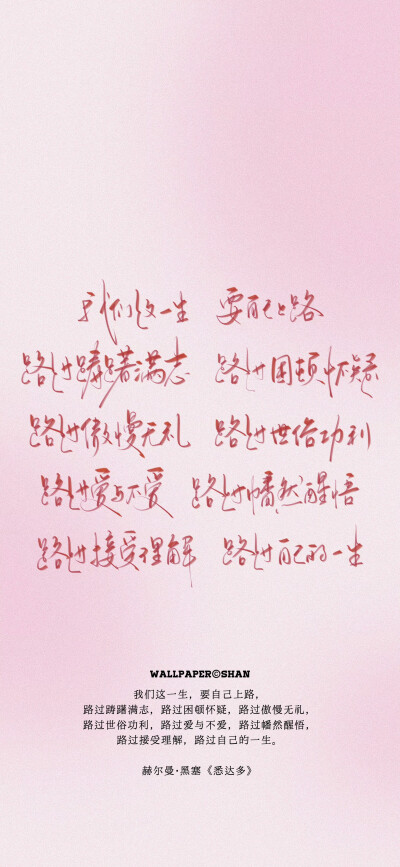 我们这一生 要自己上路
路过踌躇满志 路过困顿怀疑
路过傲慢无礼 路过世俗功利
路过爱与不爱 路过幡然醒悟
路过接受理解 路过自己的一生
WALLPAPER©SHAN
我们这一生，要自己上路，
路过踌躇满志，路过困顿怀疑，路过傲慢无礼，
路过世俗功利，路过爱与不爱，路过幡然醒悟，
路过接受理解，路过自己的一生。
赫尔曼·黑塞《悉达多》